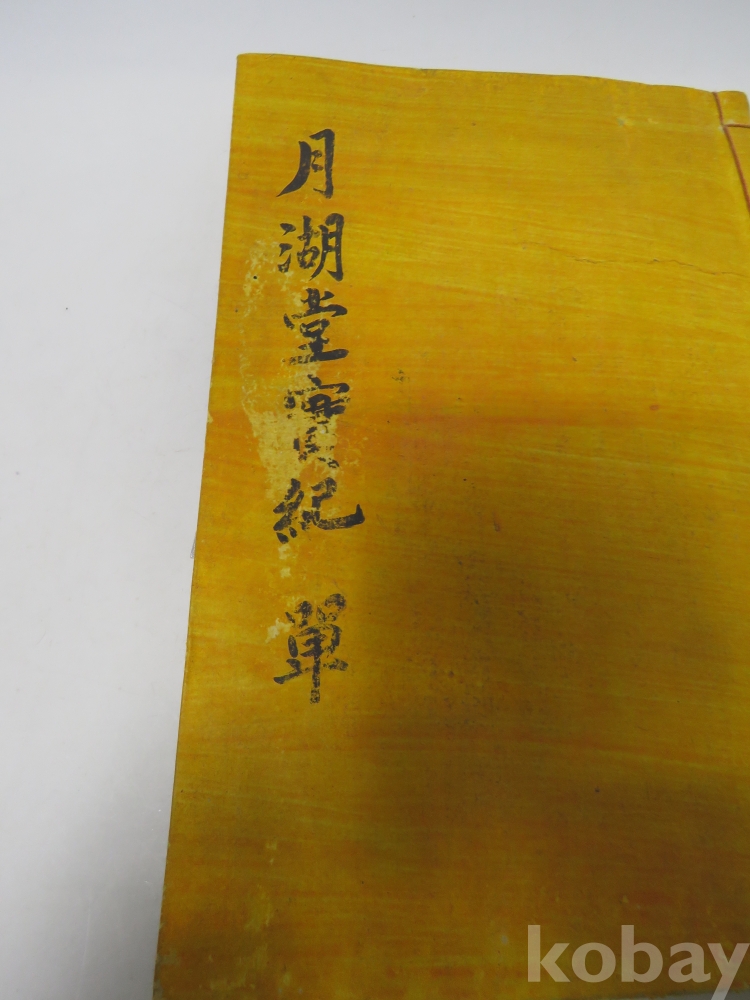 月湖堂實紀 單
kobay